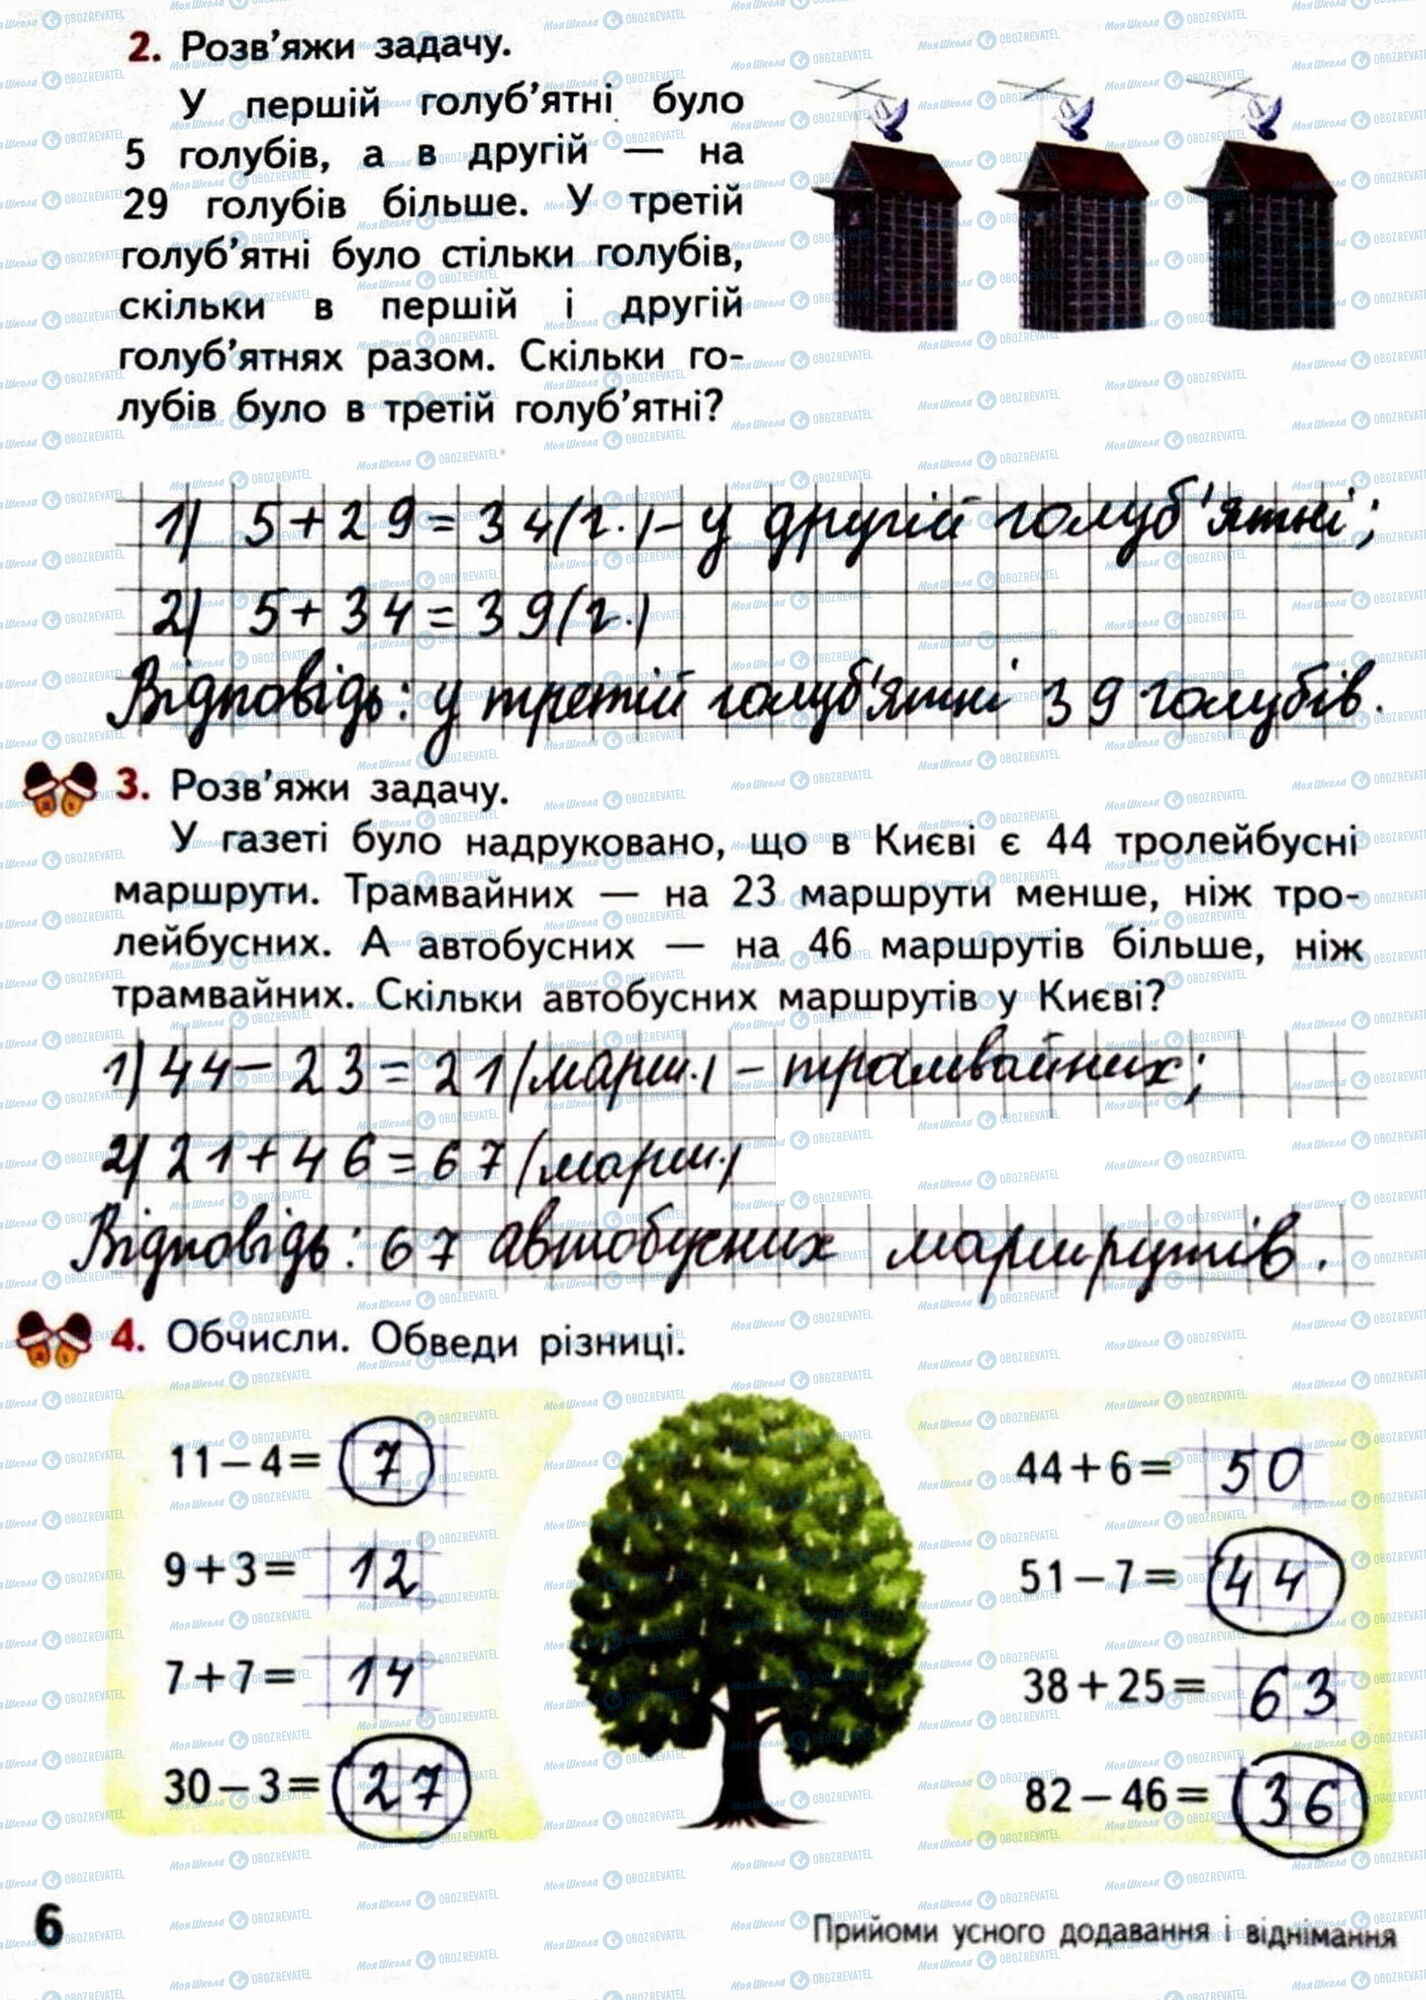 2. Розв'яжи задачу.
У першій голуб'ятні було
5 голубів, а в другій — на
29 голубів більше. У третій
голуб'ятні було стільки голубів,
скільки в першій і другій
голуб'ятнях разом. Скільки го-
лубів було в третій голуб'ятні?
1) 5+29=34(г.)-у другій голуб'ятні;
2) 5+34=39(г.)
Відповідь: у третій голуб'ятні 39 голубів.
3. Розв'яжи задачу.
У газеті було надруковано, що в Києві є 44 тролейбусні
маршрути. Трамвайних — на 23 маршрути менше, ніж тро-
лейбусних. А автобусних — на 46 маршрутів більше, ніж
трамвайних. Скільки автобусних маршрутів у Києві?
1) 44-23=21(марш.)-трамвайних;
2) 21+46=67(марш.)
Відповідь: 67 автобусних маршрутів.
4. Обчисли. Обведи різниці.
11-4= 7
9+3= 12
7+7= 14
30-3= 27
44+6= 50
51-7= 44
38+25= 63
82-46= 36
6
Прийоми усного додавання і віднімання
МояШкола OBOZREVATEL